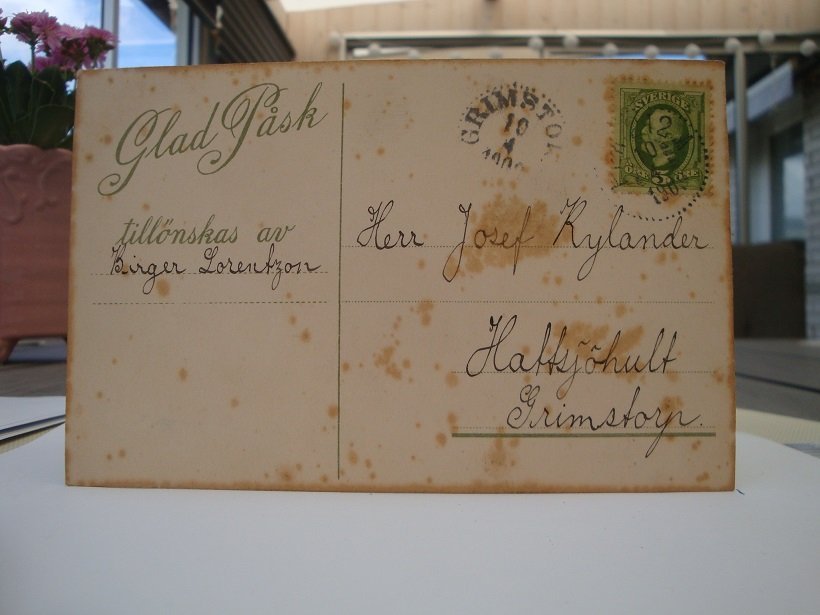 Glad Påsk
tillönskas av
Birger Lorentzon
GRIMSTOR
10
4
SVERIGE
5
ÖRE ÖRE
Herr Josef Rylander
Hattsjöhult
Grimstorp.